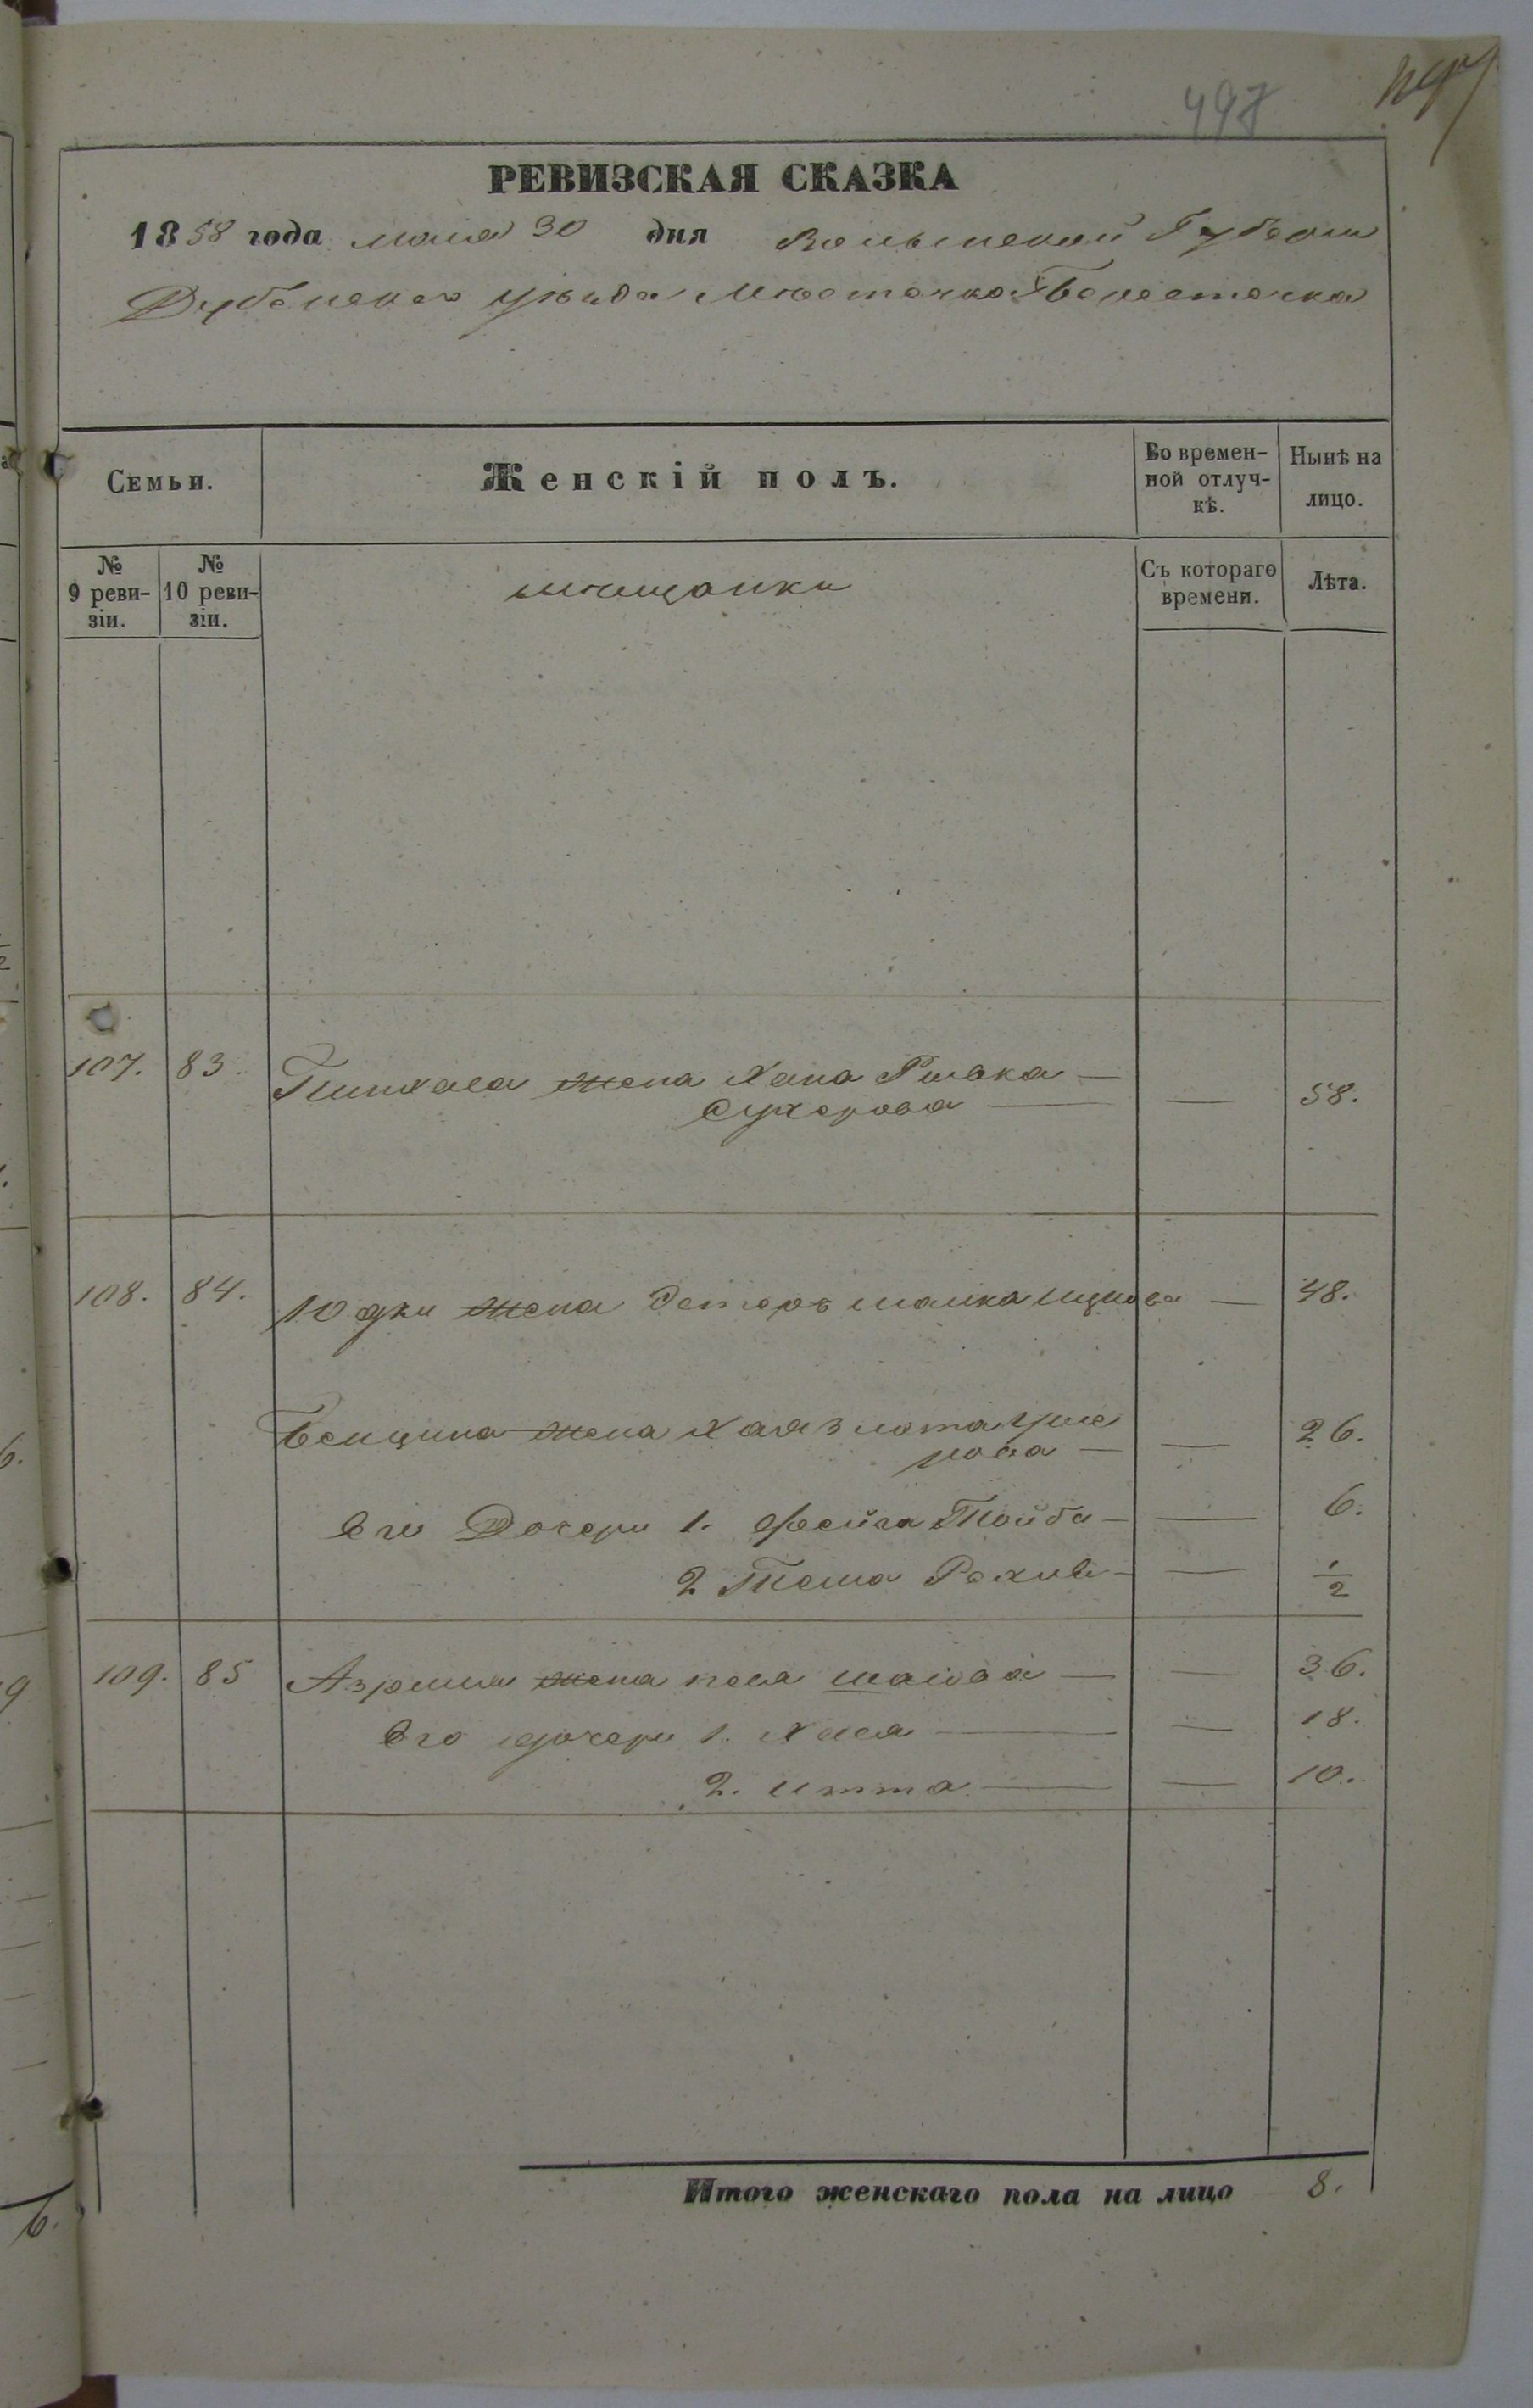 498
РЕВИЗСКАЯ СКАЗКА
1858 года мая 30 дня Волынской Губерни
Дубенского уѣзда Мѣстечка Берестечка
Семьи.
Женскій полъ.
Во времен-
ной отлуч-
кѣ.
Нынѣ на
лицо.
№
9 реви-
зіи.
№
10 реви-
зіи.
мѣщанки
Съ котораго
времени.
Лѣта.
107. 83. Пинхаса жена Хана Ривка — 
Сухерова — — 58.
108. 84. Юдки жена Эстеръ Малка Ицкова — 48.
Бенциона жена Хая Злота
рова — — 26.
Его Дочери 1. Фейга Тойба — — 6.
2 Рохля — — 1/2
109. 85 Азриля жена песя — — 36.
Его дочери 1. Хася — — 18.
2. итта — — 10.
Итого женскаго пола на лицо 8.